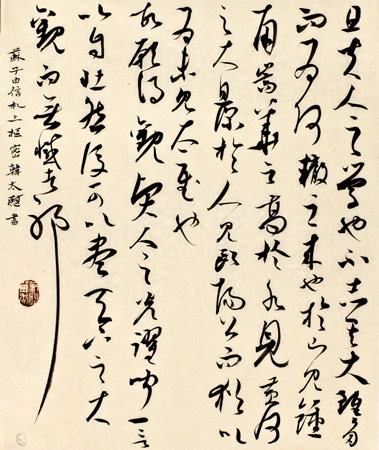 且夫人之學也不志其大雖多
而為何轍之來也於山見鍾
南嵩華之高於水見黃河
之大深於人見歐陽公而猶以
為未見太尉也
故願得觀賢人之光耀聞一言
以自壯然後可以盡天下之大
觀而無憾者耶
蘇子由信札上樞密韓太尉書